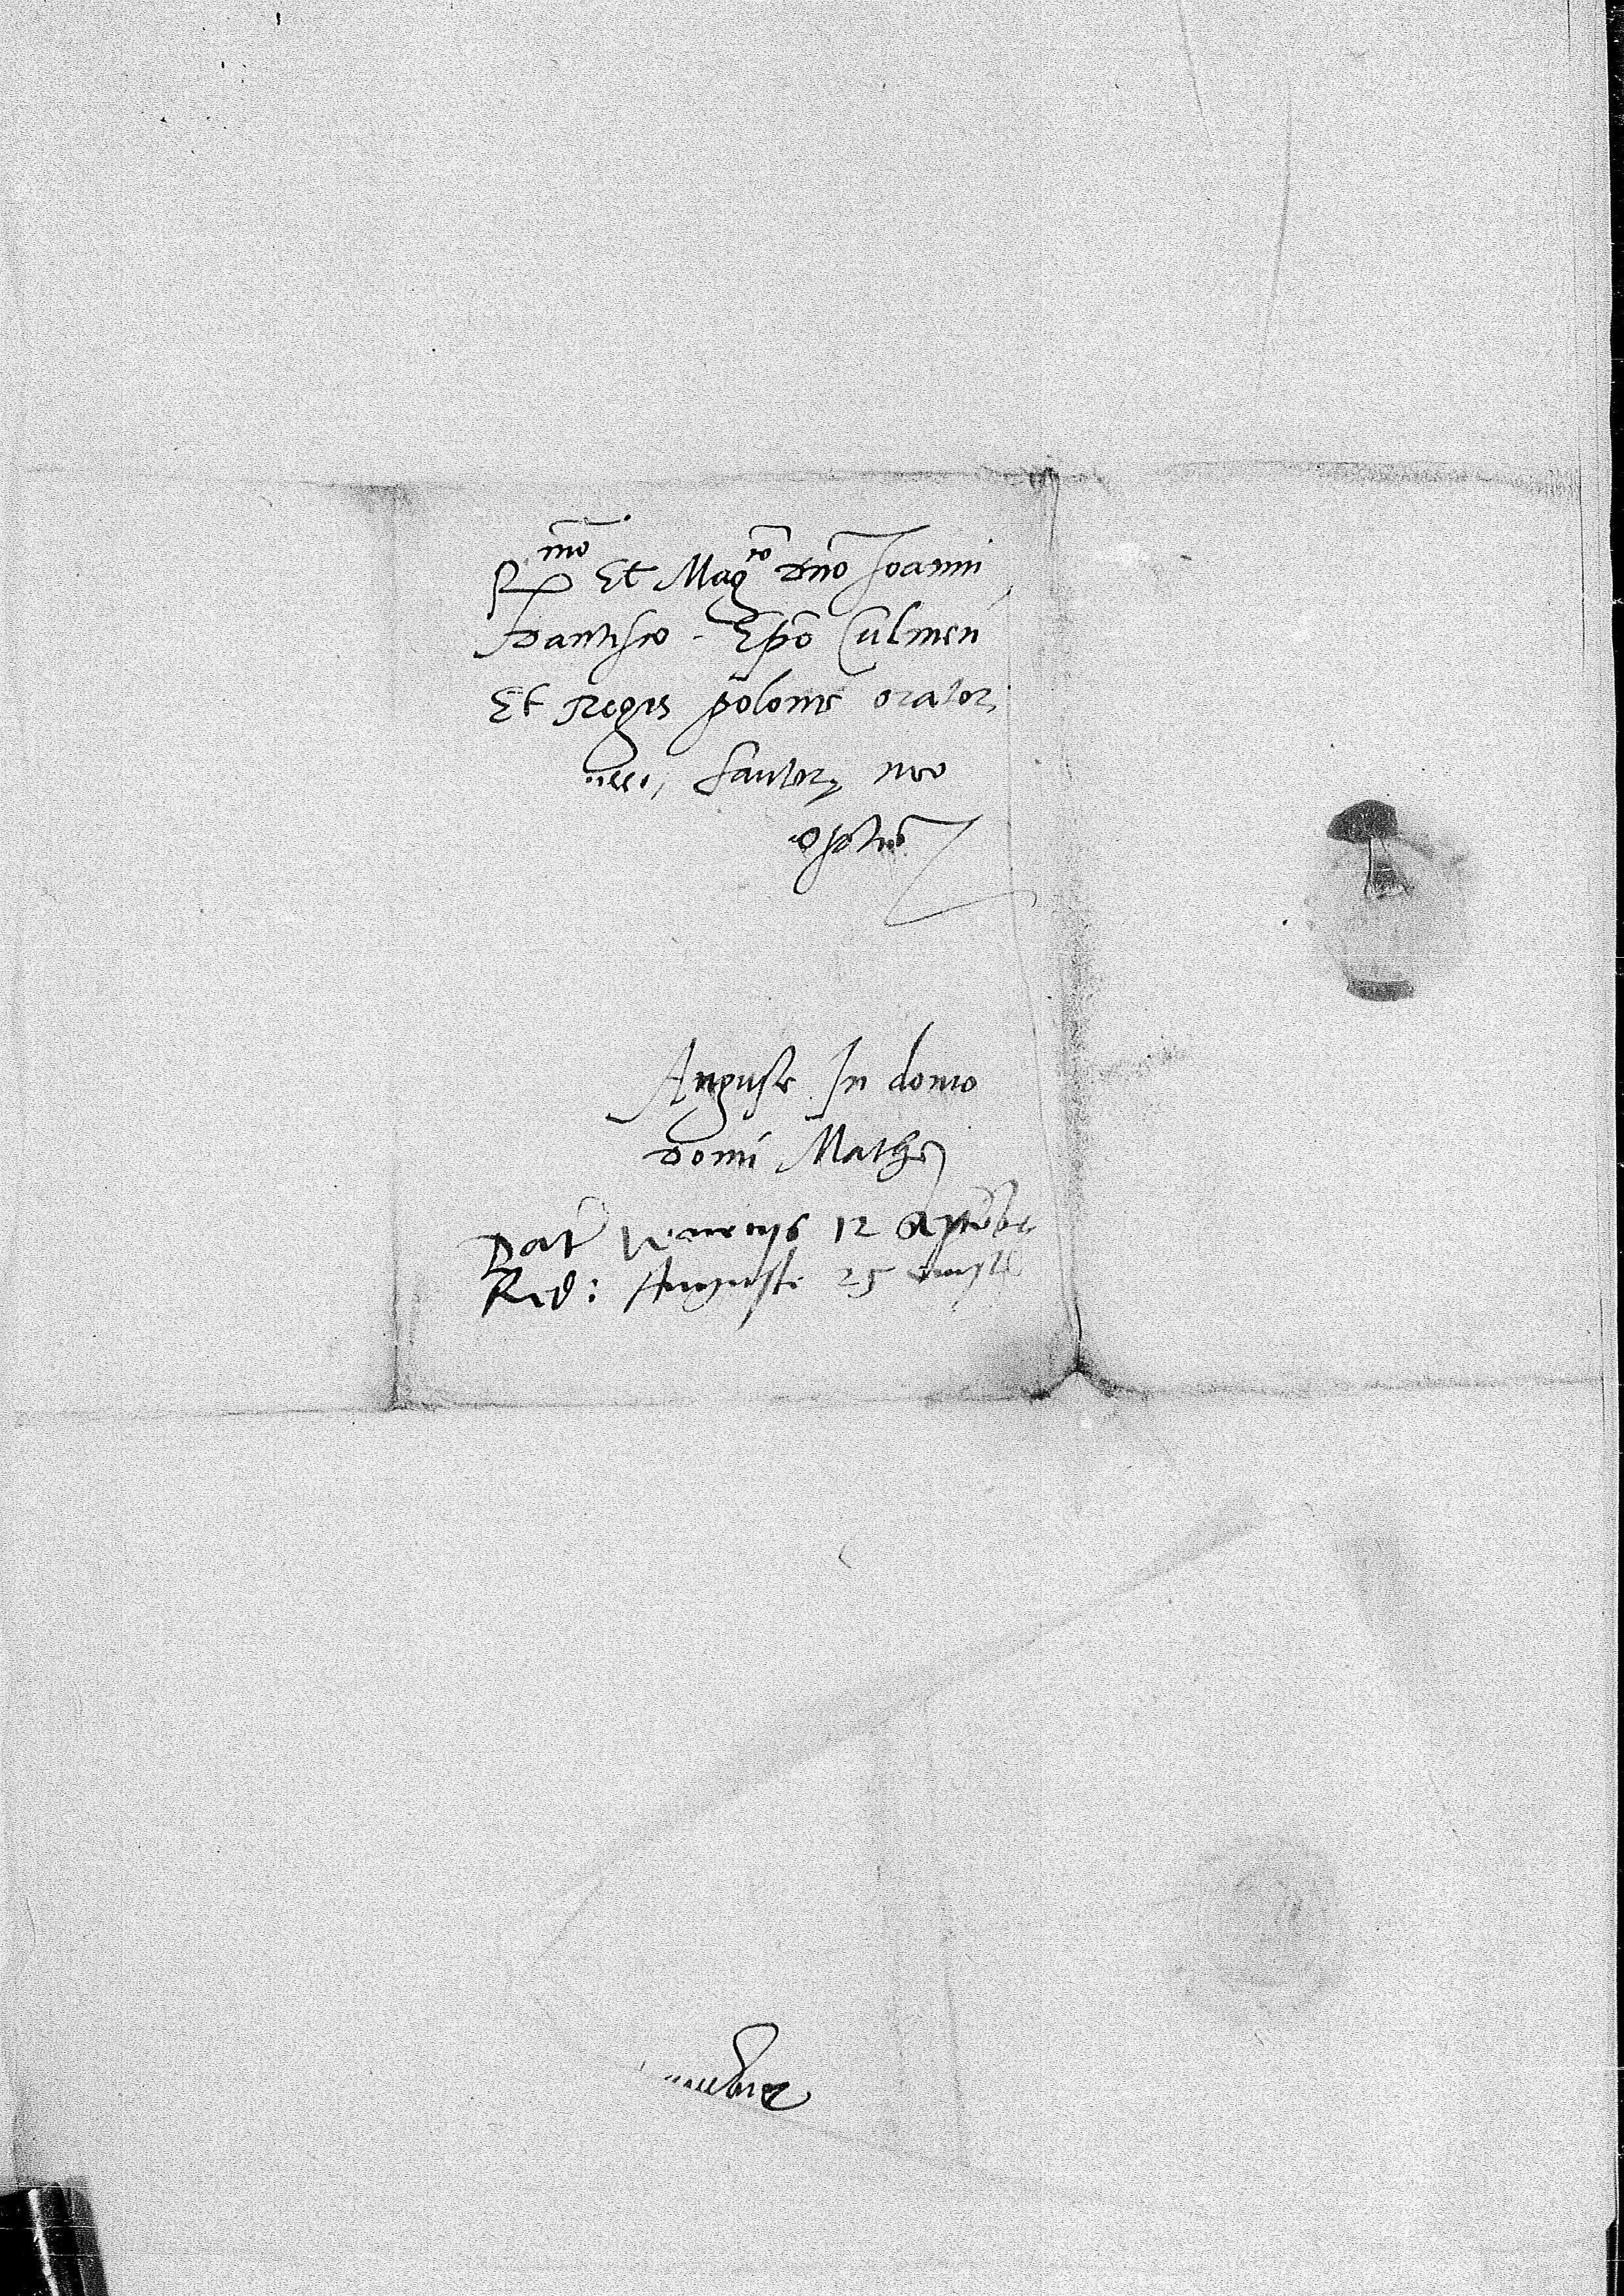 R^mo Et Mag^co Dño Joanni
Dantisco - Epõ Culmen
Et Regis polonie orator
fautori nro
optimo
Auguste In domo
Domi Mathei
Dat Venetiis 12 Septembr
Red: Auguste 25 eiusdem